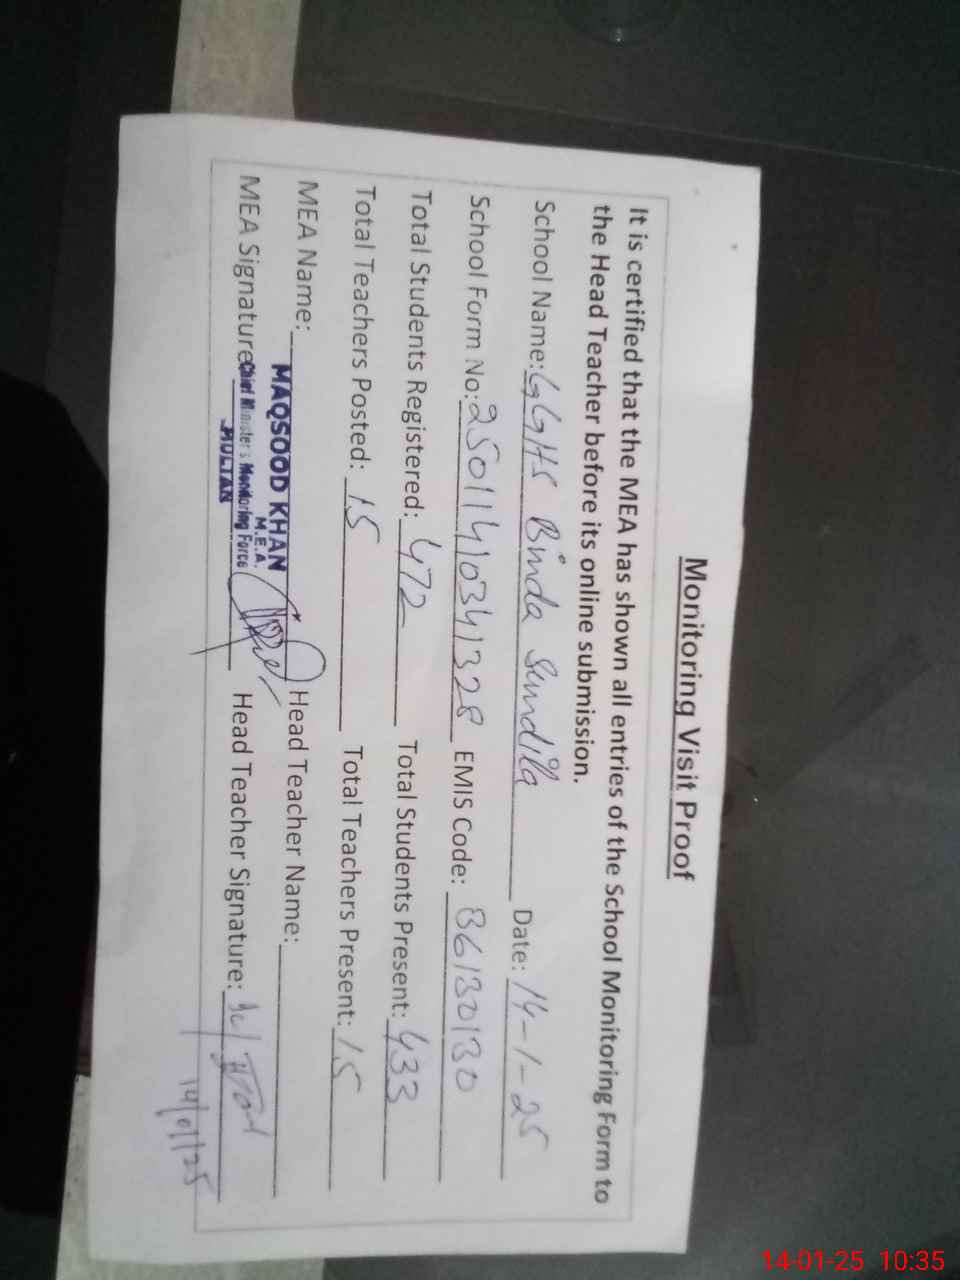 Monitoring Visit Proof
It is certified that the MEA has shown all entries of the School Monitoring Form to
the Head Teacher before its online submission.
School Name: GGHS Binda Sundila Date: 14-1-25
School Form No: 25011410341328 EMIS Code: 36130130
Total Students Registered: 472 Total Students Present: 433
Total Teachers Posted: 15 Total Teachers Present: 15
MEA Name: MAQSOOD KHAN Head Teacher Name:
M.E.A.
MEA Signature Chief Minister's Monitoring Force Head Teacher Signature:
MULTAN
14/01/25
14-01-25 10:35